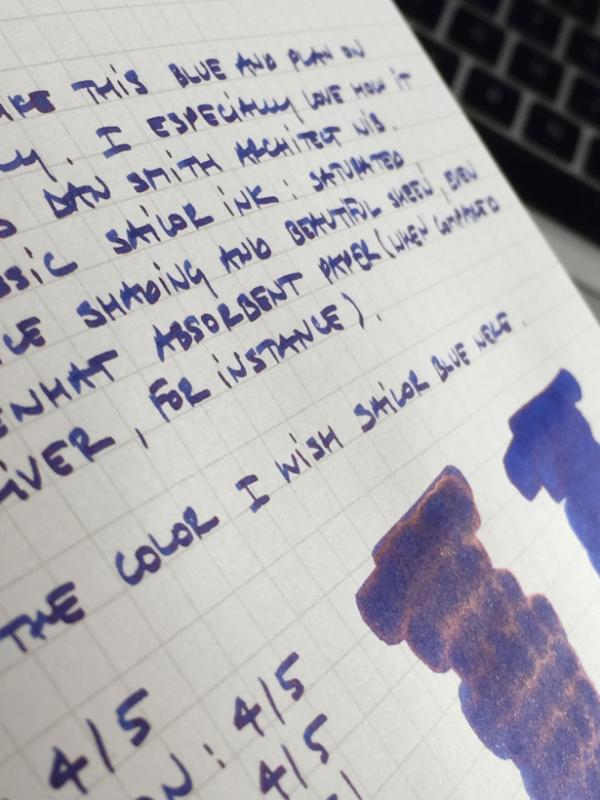 THIS BLUE AND PLAN ON
. I ESPECIALLY LOVE HOW IT
DAN SMITH ARCHITECT NIB.
SSIC SAILOR INK : SATURATED,
ICE SHADING AND BEAUTIFUL SHEEN, EVEN
ENHAT ABSORBENT PAPER (WHEN COMPARED
IVER, FOR INSTANCE).
THE COLOR I WISH SAILOR BLUE WERE.
4/5
ON : 4/5
4/5